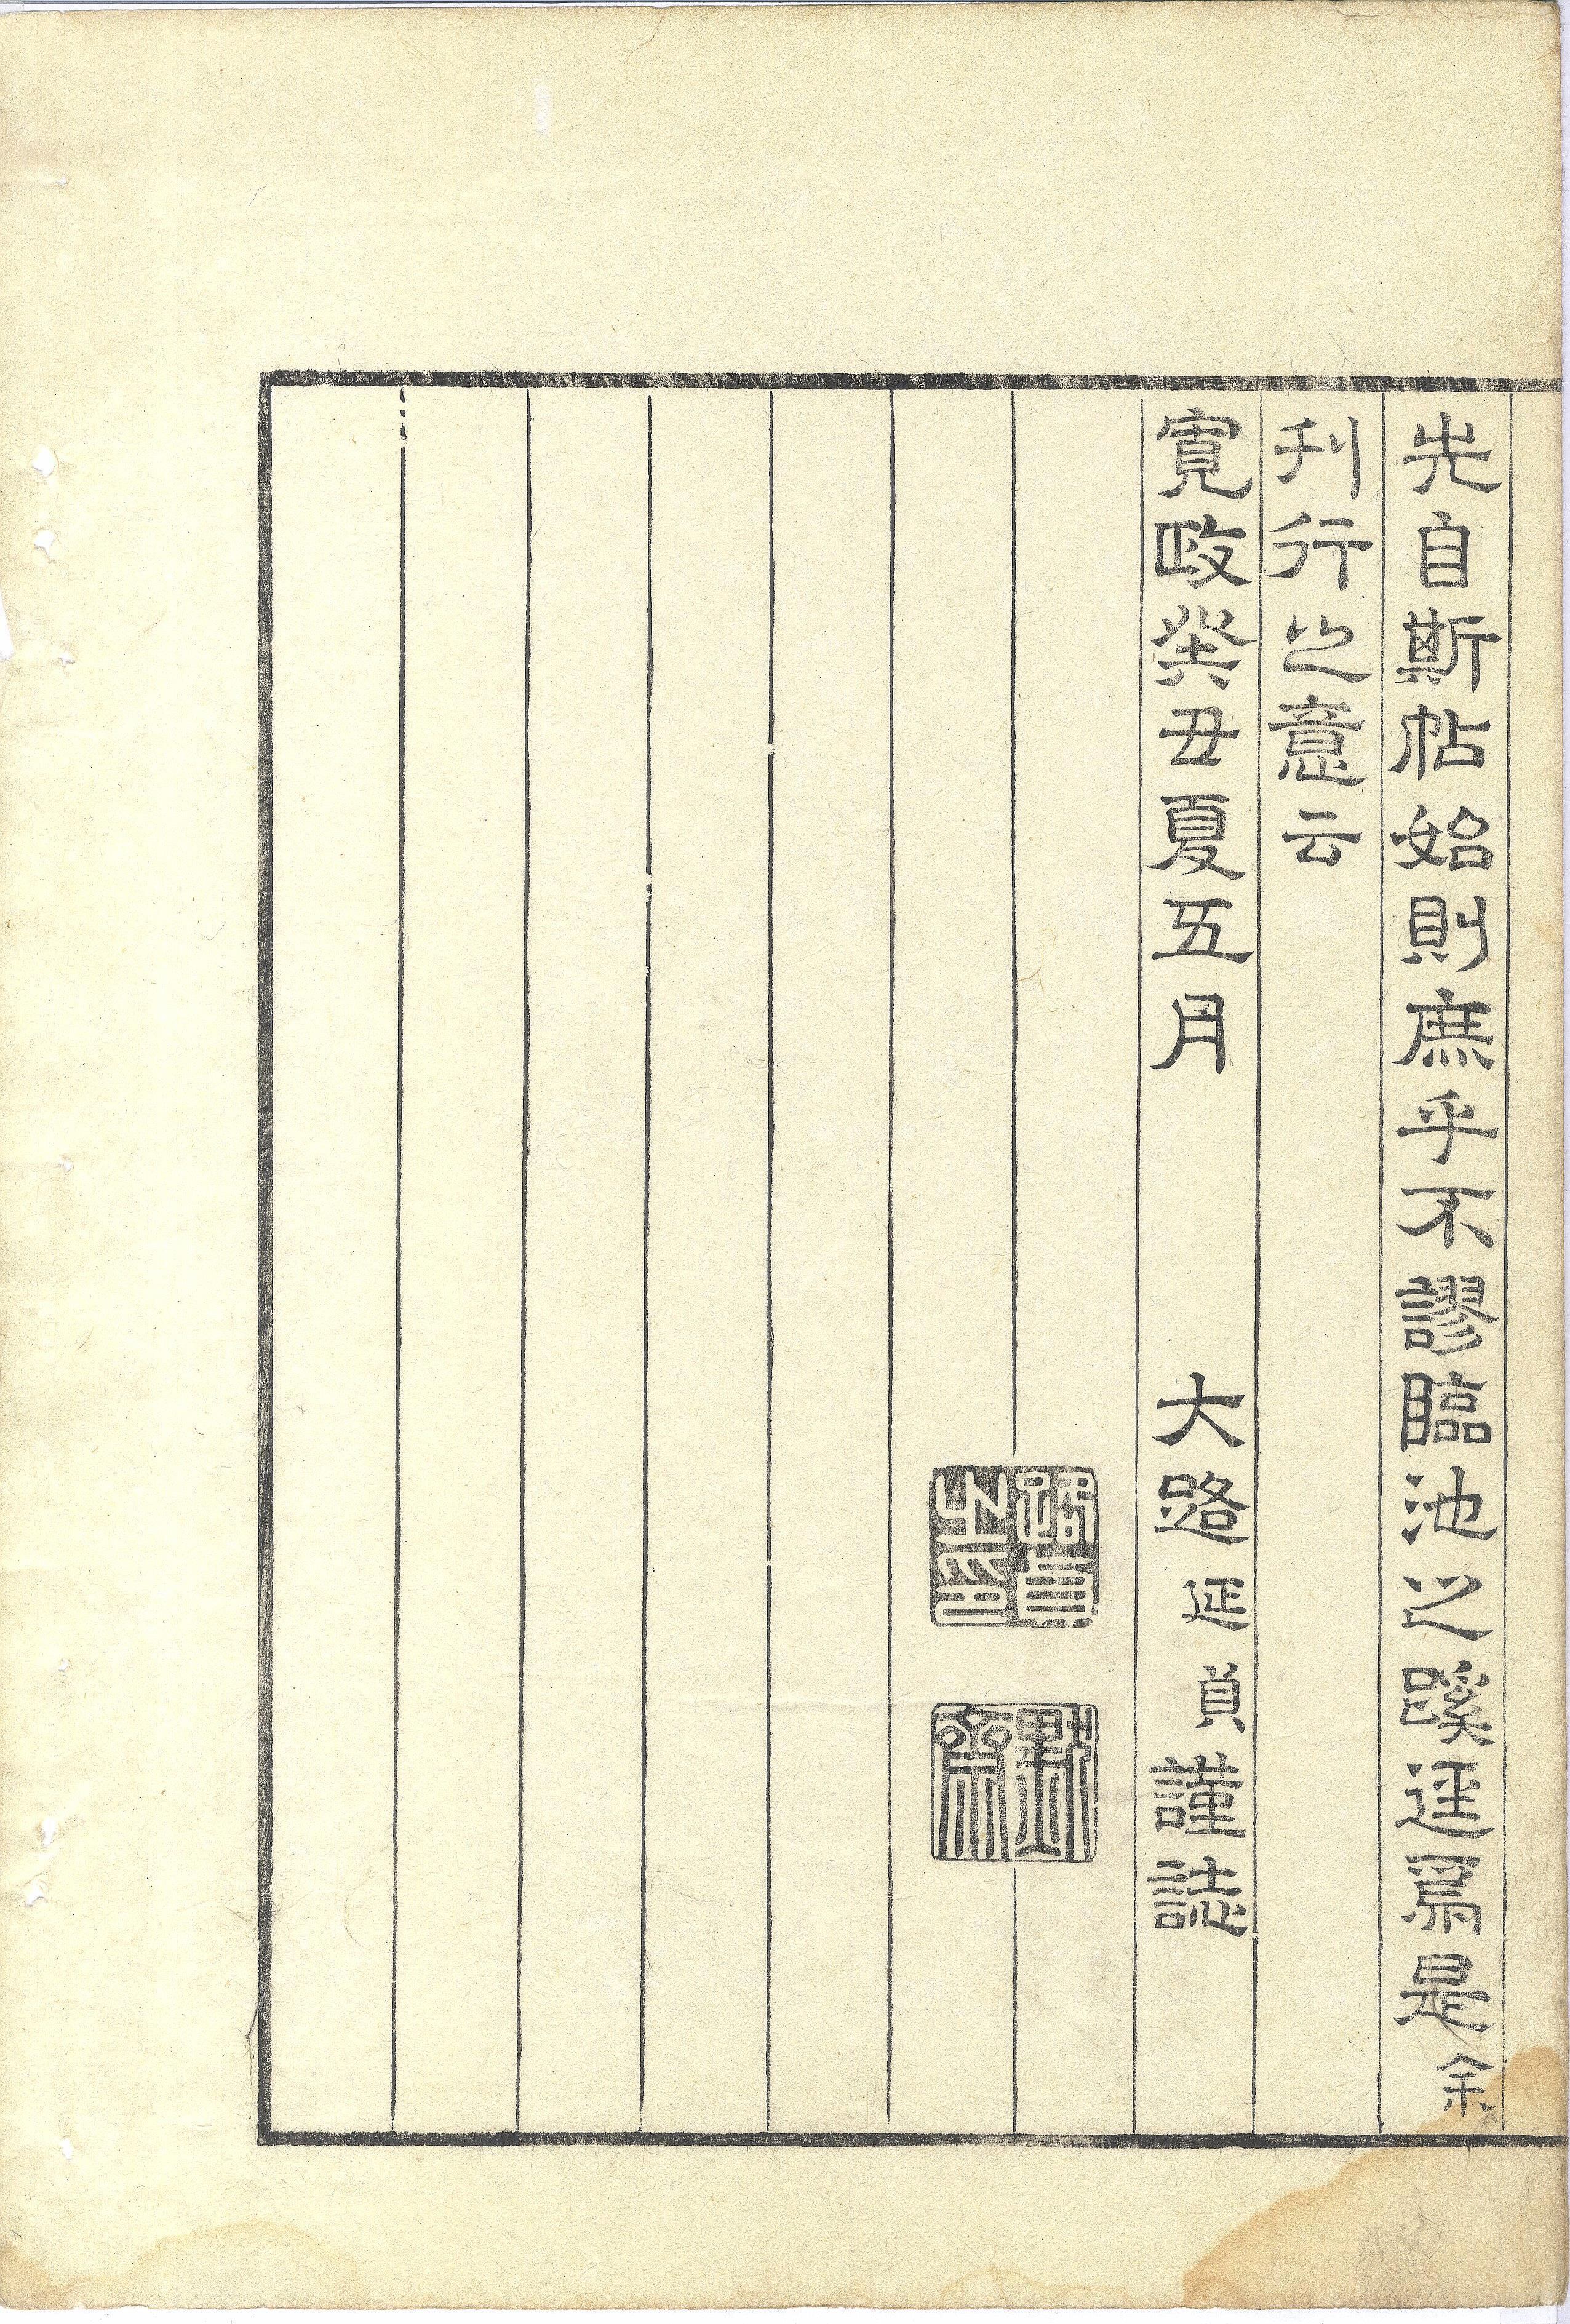 先自斯帖始則庶乎不謬臨池之蹊逕焉是余
刊行之意云
寬政癸丑夏五月　大路延貞謹誌
之印
默齋